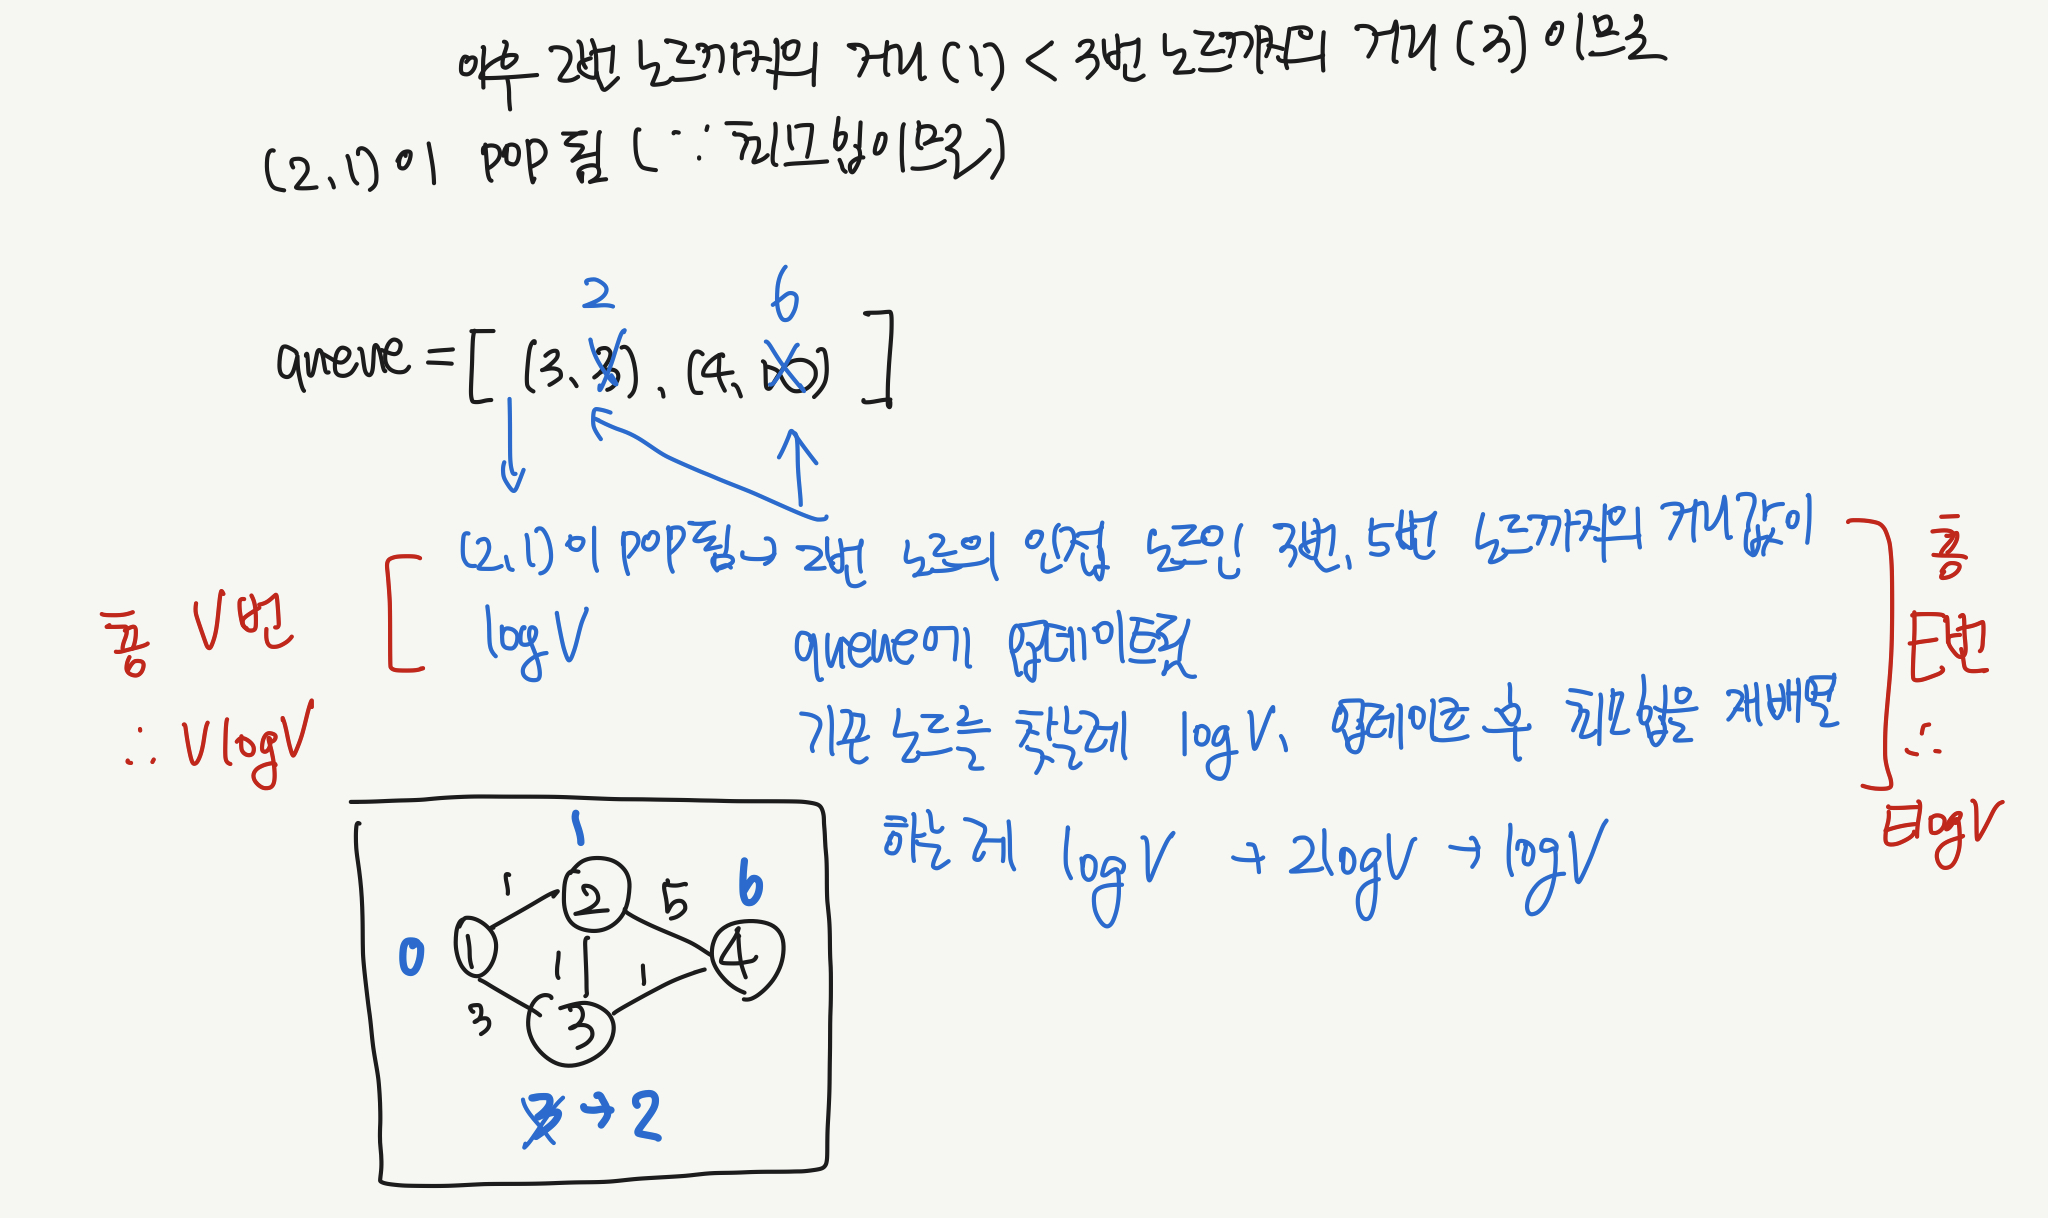 이후 2번 노드까지의 거리(1) < 3번 노드까지의 거리(3)이므로
(2,1)이 pop됨 (∵ 최소힙이므로)
2 6
queue = [ (3, 3), (4, ∞) ]
(2,1)이 pop됨 → 2번 노드의 인접 노드인 3번, 5번 노드까지의 거리값이
log V queue에 업데이트됨
기존 노드를 찾는데 log V, 업데이트 후 최소힙을 재배열
하는 데 log V → 2log V → log V
총 V번
∴ V log V
총
E번
∴
E log V
1
1 2 5 6
0 1 1 1 4
3 3
3 → 2